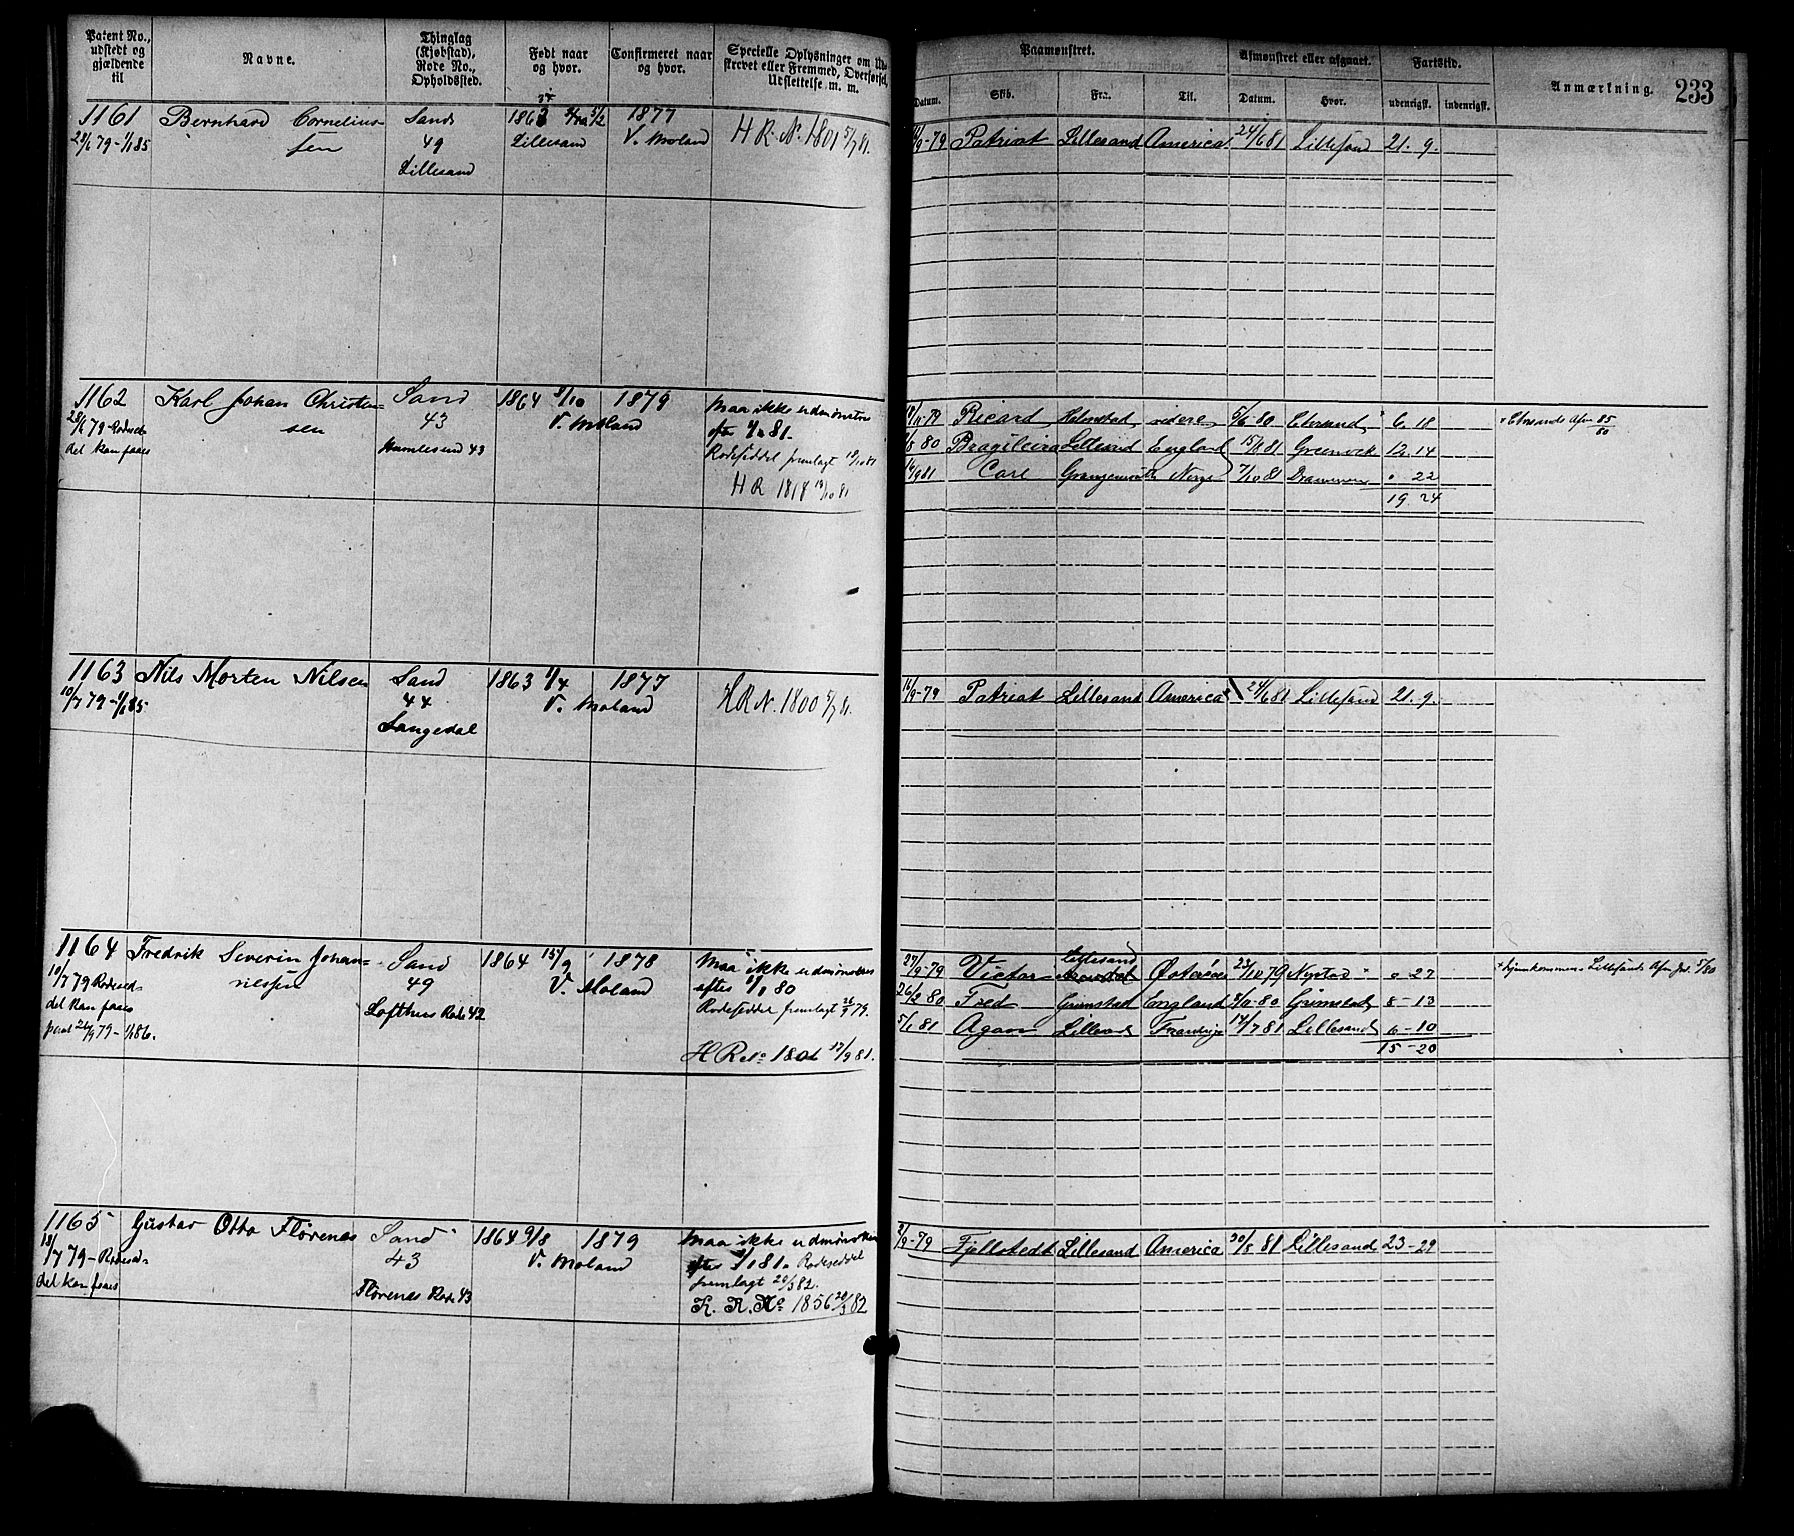 Patent No., udstedt og gjældende til
Navne.
Thinglag (Kjøbstad), Rode No., Opholdssted.
Født naar og hvor.
Confirmeret naar og hvor.
Specielle Oplysninger om Udskrevet eller Fremmed, Overførsel, Udslettelse m. m.
Paamønstret.
Afmønstret eller afgaaet.
Fartstid.
Anmærkning.
233
Datum.
Skib.
Fra.
Til.
Datum.
Hvor.
udenrigsk.
indenrigsk.
1161 Bernhard Cornelius- Sand 1863 1877 H R. N. 1801 5/7 81.
28/6 79-1/1 85 sen 49 Lillesand V. Moland
Lillesand
16/9-79 Patriot Lillesand America 24/6 81 Lillesand 21. 9.
1162 Karl Johan Christen- Sand 1864 1879 Maa ikke udmønstres
28/6 79-Rodesed- sen 43 V. Moland efter 81.
del kan faaes Humlesund 43 Rodeseddel fremlagt 18/10 81
H R 1818 18/10 81
Ricard Halmstad videre 5/6-80 6. 18
80 Brazileira England 15/8 81 Greenock 12. 14
Carl Grangemouth Norge 7/10 81 Drammen 0. 22
19. 24
1163 Nils Morten Nilsen Sand 1863 1/4 1877 H R N. 1800 5/7 81.
10/7 79-1/1 85. 44 V. Moland
Langedal
16/9-79 Patriot Lillesand America 24/6 81 Lillesand 21. 9.
1164 Fredrik Severin Johan- Sand 1864 15/9 1878 Maa ikke udmønstres
10/7 79 Rodesed- nesen 49 V. Moland efter 1/1 80
del kan faaes Lofthus Rode 42 Rodeseddel fremlagt 26/9 79.
26/9 79-1/1 86.
H R No 1801 17/9 81.
Lillesand
27/9-79 Victor Arendal Østersøen 23/10 79 Nystad 0-27
26/2 80 Fred Grimstad England 80 Grimstad 8-13
5/1 81 Agan 14/7 81 Lillesand 6-10
15-20
1165 Gustav Otto Flørenes Sand 1864 9/8 1879 Maa ikke udmønstres
18/7 79-Rodesed- 43 V. Moland efter 81. Rodeseddel
del kan faaes Flørenes Rode 43 fremlagt 20/3 82.
H. R. No 1856 20/3 82
2/9-79 Fjeldstedt Lillesand America 30/8 81 Lillesand 23-29